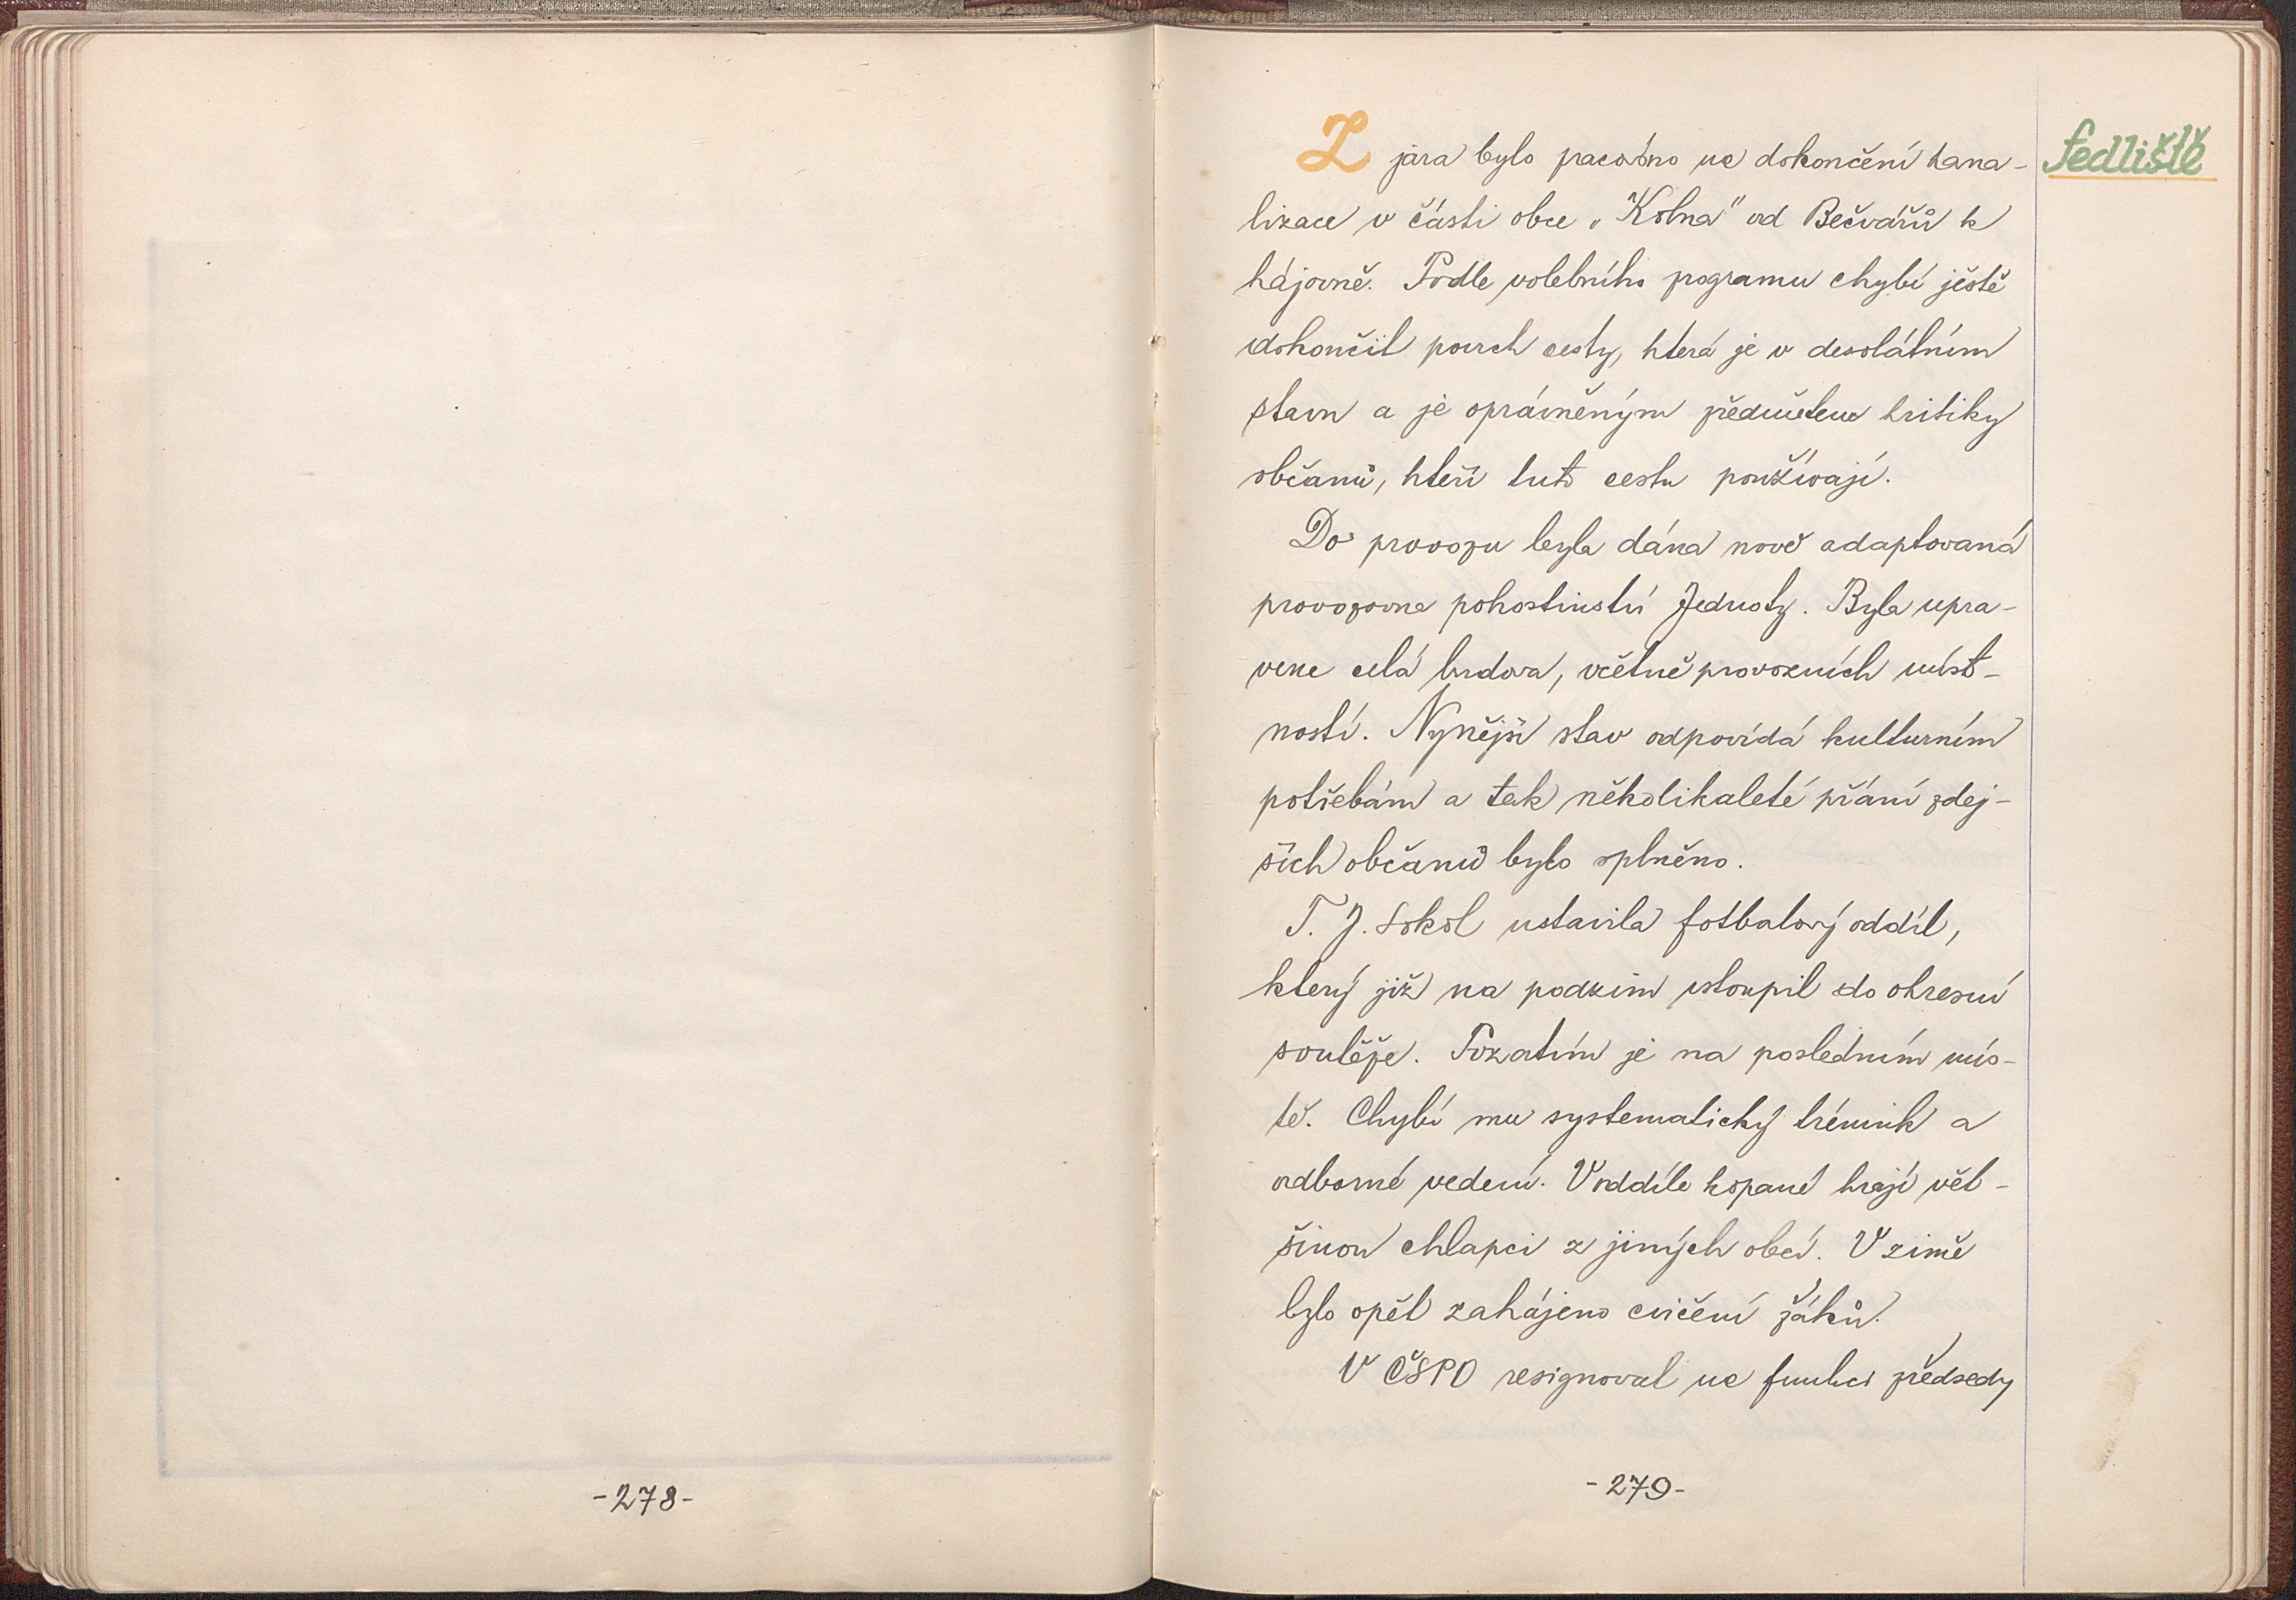 -278-
Sedliště
Z jara bylo pracováno na dokončení kana-
lizace v části obce „Kolna" od Bečvářů k
hájovně. Podle volebního programu chybí ještě
dokončit povrch cesty, která je v desolátním
stavu a je oprávněným předmětem kritiky
občanů, kteří tuto cestu používají.
Do provozu byla dána nově adaptovaná
provozovna pohostinství Jednoty. Byla upra-
vena celá budova, včetně provozních míst-
ností. Nynější stav odpovídá kulturním
potřebám a tak několikaleté přání zdej-
ších občanů bylo splněno.
T. J. Sokol ustavila fotbalový oddíl,
který již na podzim vstoupil do okresní
soutěže. Pozatím je na posledním mís-
tě. Chybí mu systematický trénink a
odborné vedení. V oddíle kopané hrají vět-
šinou chlapci z jiných obcí. V zimě
bylo opět zahájeno cvičení žáků.
V ČSPO resignoval na funkci předsedy
-279-